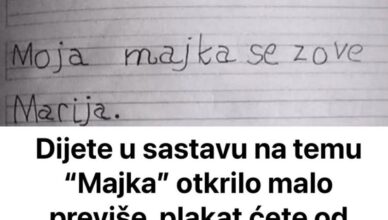 Moja majka se zove
Marija.
Dijete u sastavu na temu
“Majka” otkrilo malo
previše, plakat ćete od